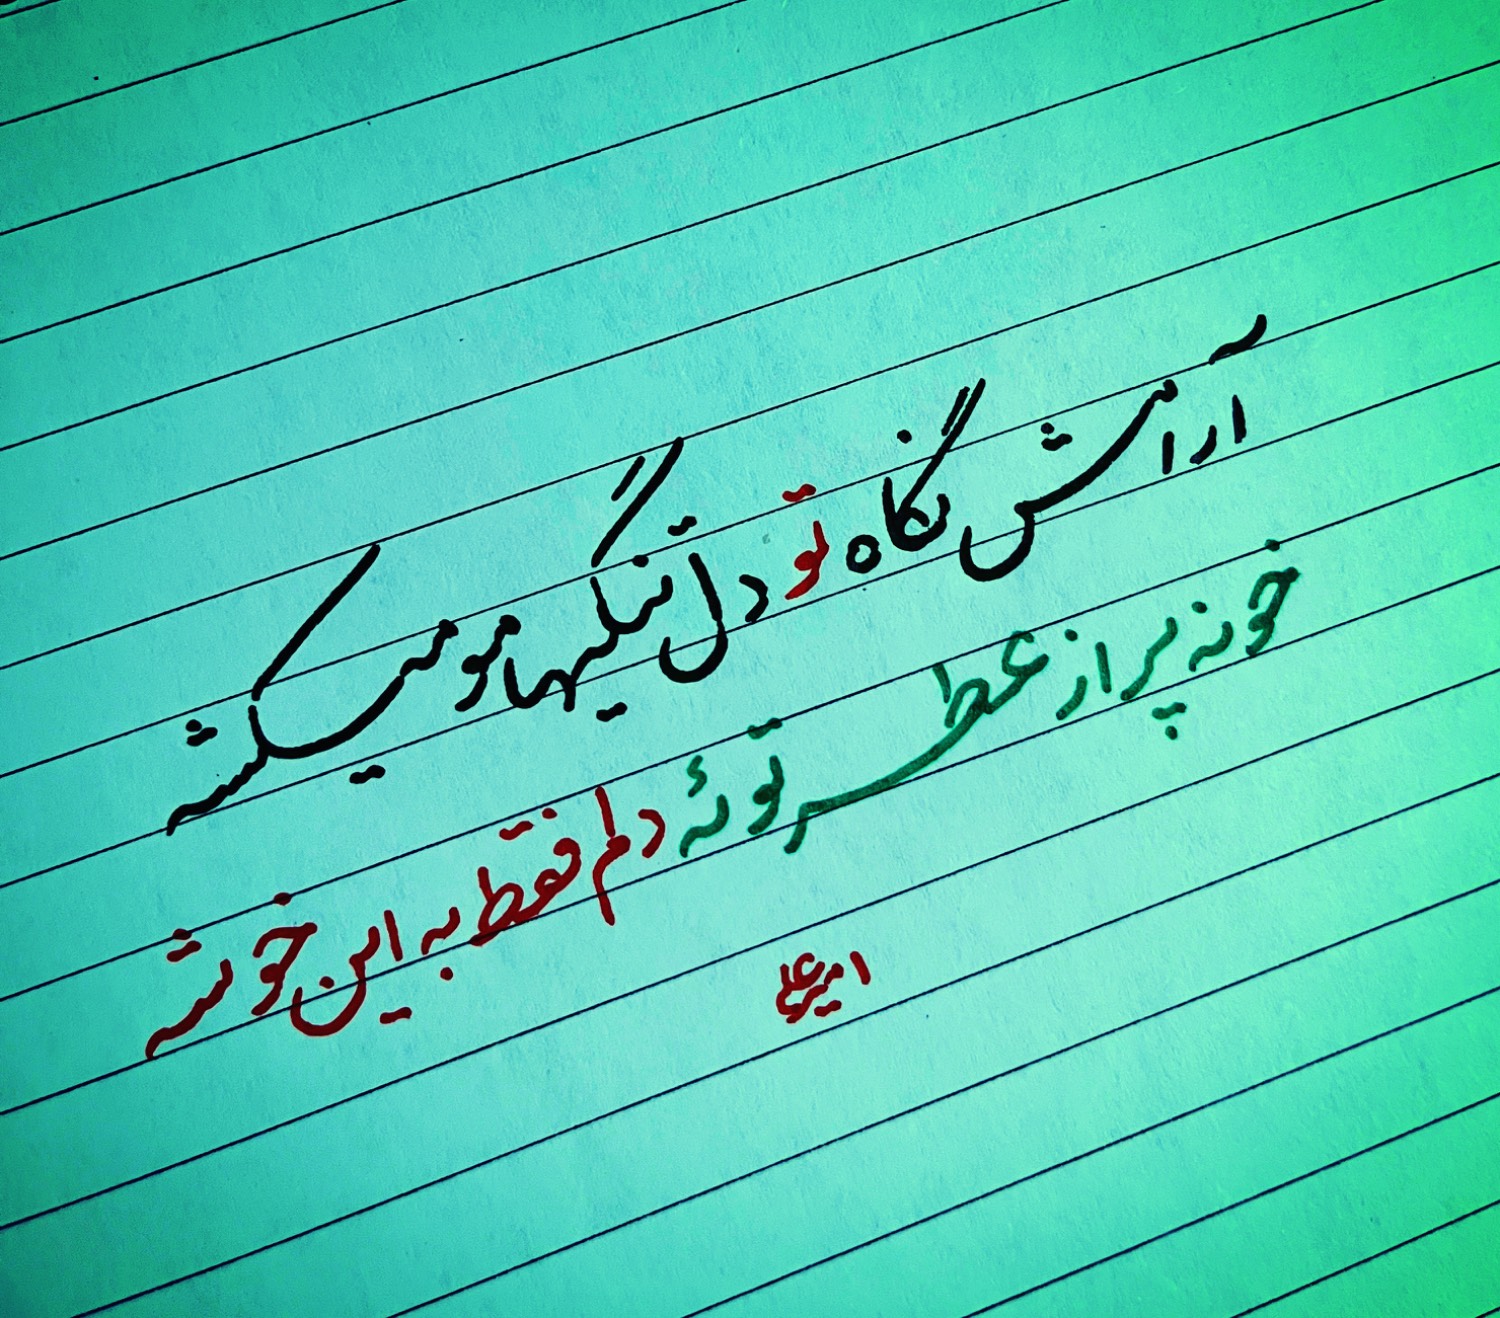 آرامش نگاه تو دل تنگیهامو میکشه
خونه پر از عطر توئه دلم فقط به این خوشه
امیرعلی